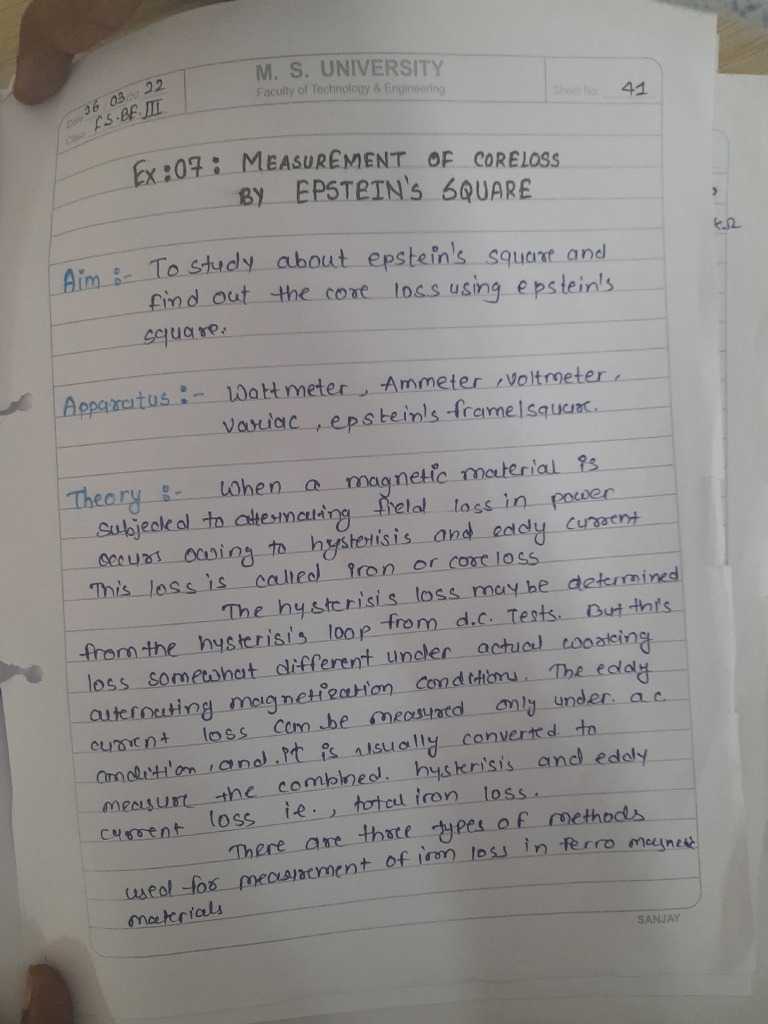 M. S. UNIVERSITY
Faculty of Technology & Engineering
Date 16 03 20 22
Class ES-BE-III
Sheet No. 41
Ex:07: MEASUREMENT OF CORELOSS
BY EPSTEIN'S SQUARE
Aim :- To study about epstein's square and
find out the core loss using epstein's
square.
Apparatus :- Wattmeter, Ammeter, voltmeter,
variac, epstein's frame/square.
Theory :- When a magnetic material is
subjected to alternating field loss in power
occurs owing to hysterisis and eddy current
This loss is called iron or core loss
The hysterisis loss may be determined
from the hysterisis loop from d.c. Tests. But this
loss somewhat different under actual working
alternating magnetization condition. The eddy
current loss can be measured only under a.c
condition, and it is usually converted to
measure the combined hysterisis and eddy
current loss i.e., total iron loss.
There are three types of methods
used for measurement of iron loss in ferro magnetic
materials
SANJAY